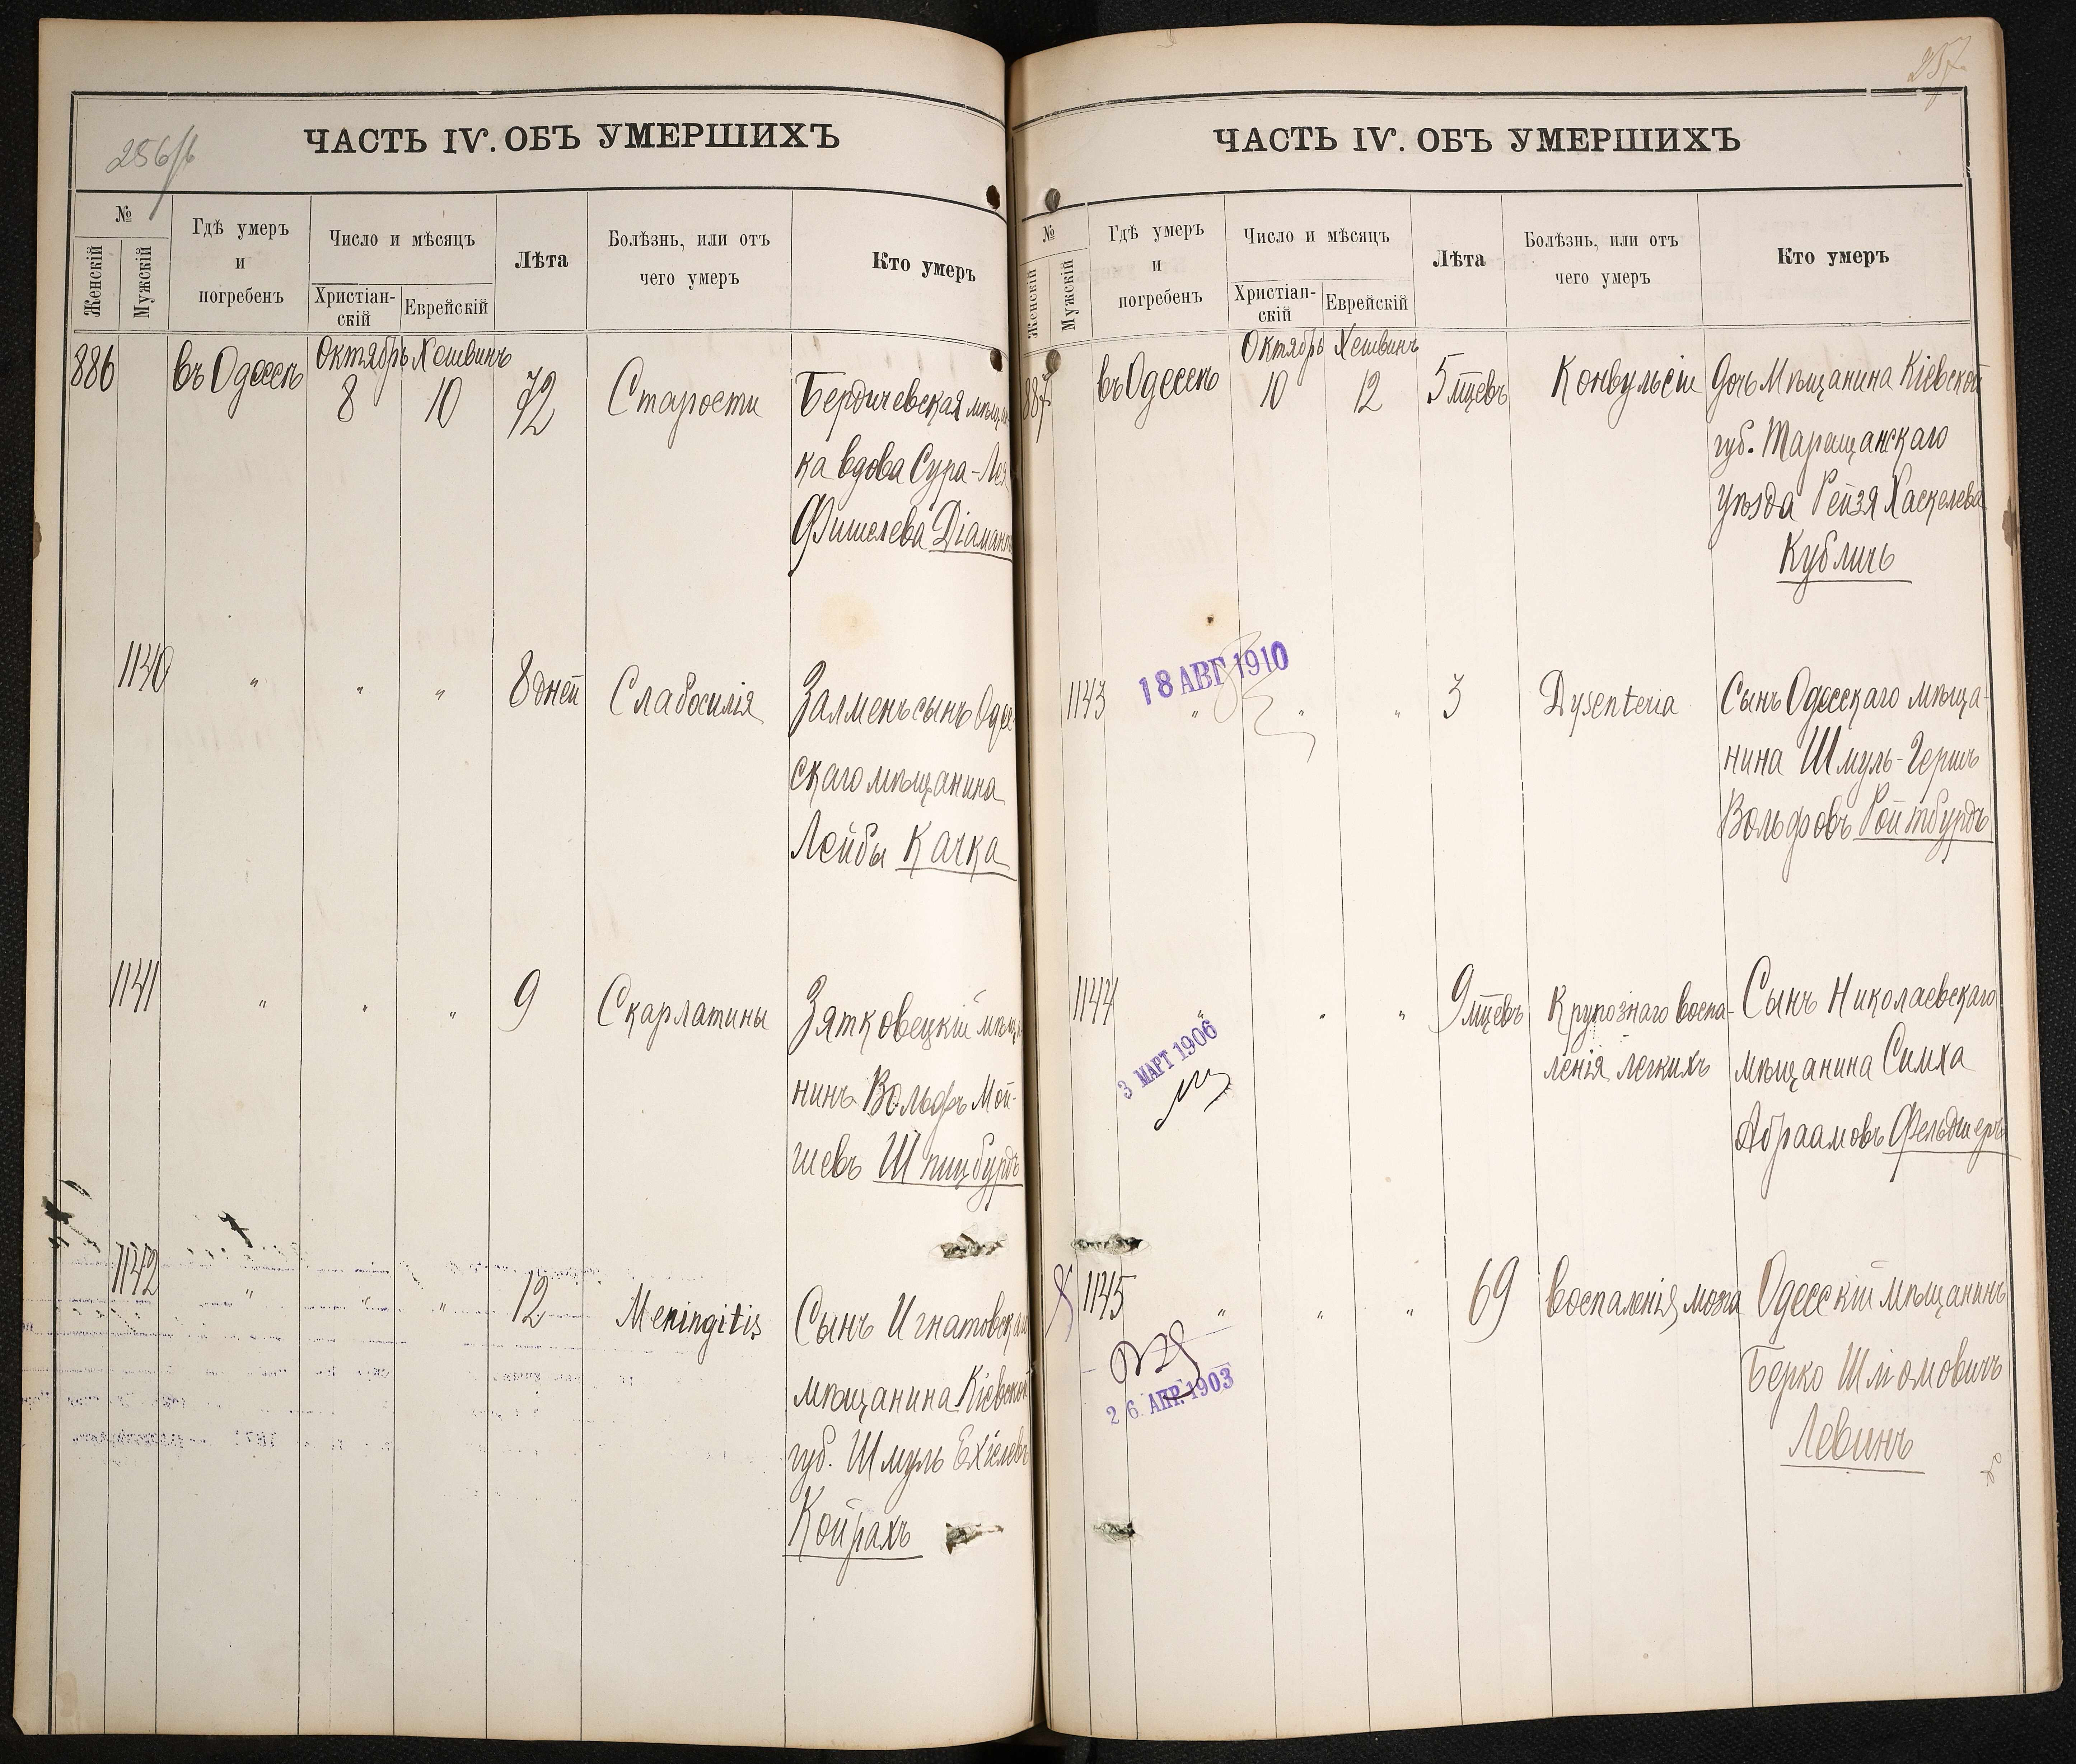 256/б
ЧАСТЬ IV. ОБЪ УМЕРШИХЪ
№
Женскій
Мужскій
Гдѣ умеръ
и
погребенъ
Число и мѣсяцъ
Христіан-
скій
Еврейскій
Лѣта
Болѣзнь, или отъ
чего умеръ
Кто умеръ
886 въ Одессѣ Октябрь 8 Хешвинъ 10 72 Старости Бердичевская мѣщан-
ка вдова Сура-Лея
Фишелева Діамантъ
1140 " " " 8 дней Слабосилія Залменъ сынъ Одес-
скаго мѣщанина
Лейбы Качка
1141 " " " 9 Скарлатины Зятковецкій мѣща-
нинъ Вольфъ Мой-
шевъ Шпицбурдъ
1142 " " " 12 Meningitis Сынъ Игнатовскаго
мѣщанина Кіевской
губ. Шмуль Ехіелевъ
Койрахъ
257
ЧАСТЬ IV. ОБЪ УМЕРШИХЪ
№
Женскій
Мужскій
Гдѣ умеръ
и
погребенъ
Число и мѣсяцъ
Христіан-
скій
Еврейскій
Лѣта
Болѣзнь, или отъ
чего умеръ
Кто умеръ
887 въ Одессѣ Октябрь 10 Хешвинъ 12 5 мцевъ Конвульсіи Дочь Мѣщанина Кіевской
губ. Таращанскаго
уѣзда Рейзя Хаскелева
Кубличъ
18 АВГ 1910
1143 " " " 3 Dysenteria Сынъ Одесскаго мѣща-
нина Шмуль-Гершъ
Вольфовъ Ройтбурдъ
1144 " " " 9 мцевъ Крупознаго воспа-
ленія легкихъ
Сынъ Николаевскаго
мѣщанина Симха
Абраамовъ Фельдшеръ
3 МАРТ 1906
1145 " " " 69 воспаленія мозга Одесскій мѣщанинъ
Берко Шліомовичъ
Левинъ
26. АПР. 1903